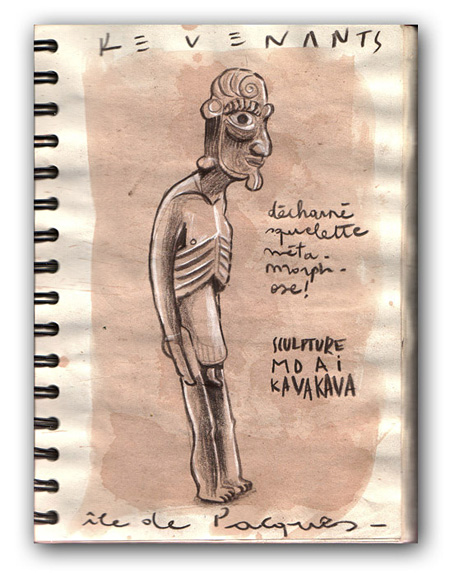 REVENANTS
décharné
squelette
méta-
morph-
ose!
SCULPTURE
MOAi
KAVAKAVA
île de Pacques -